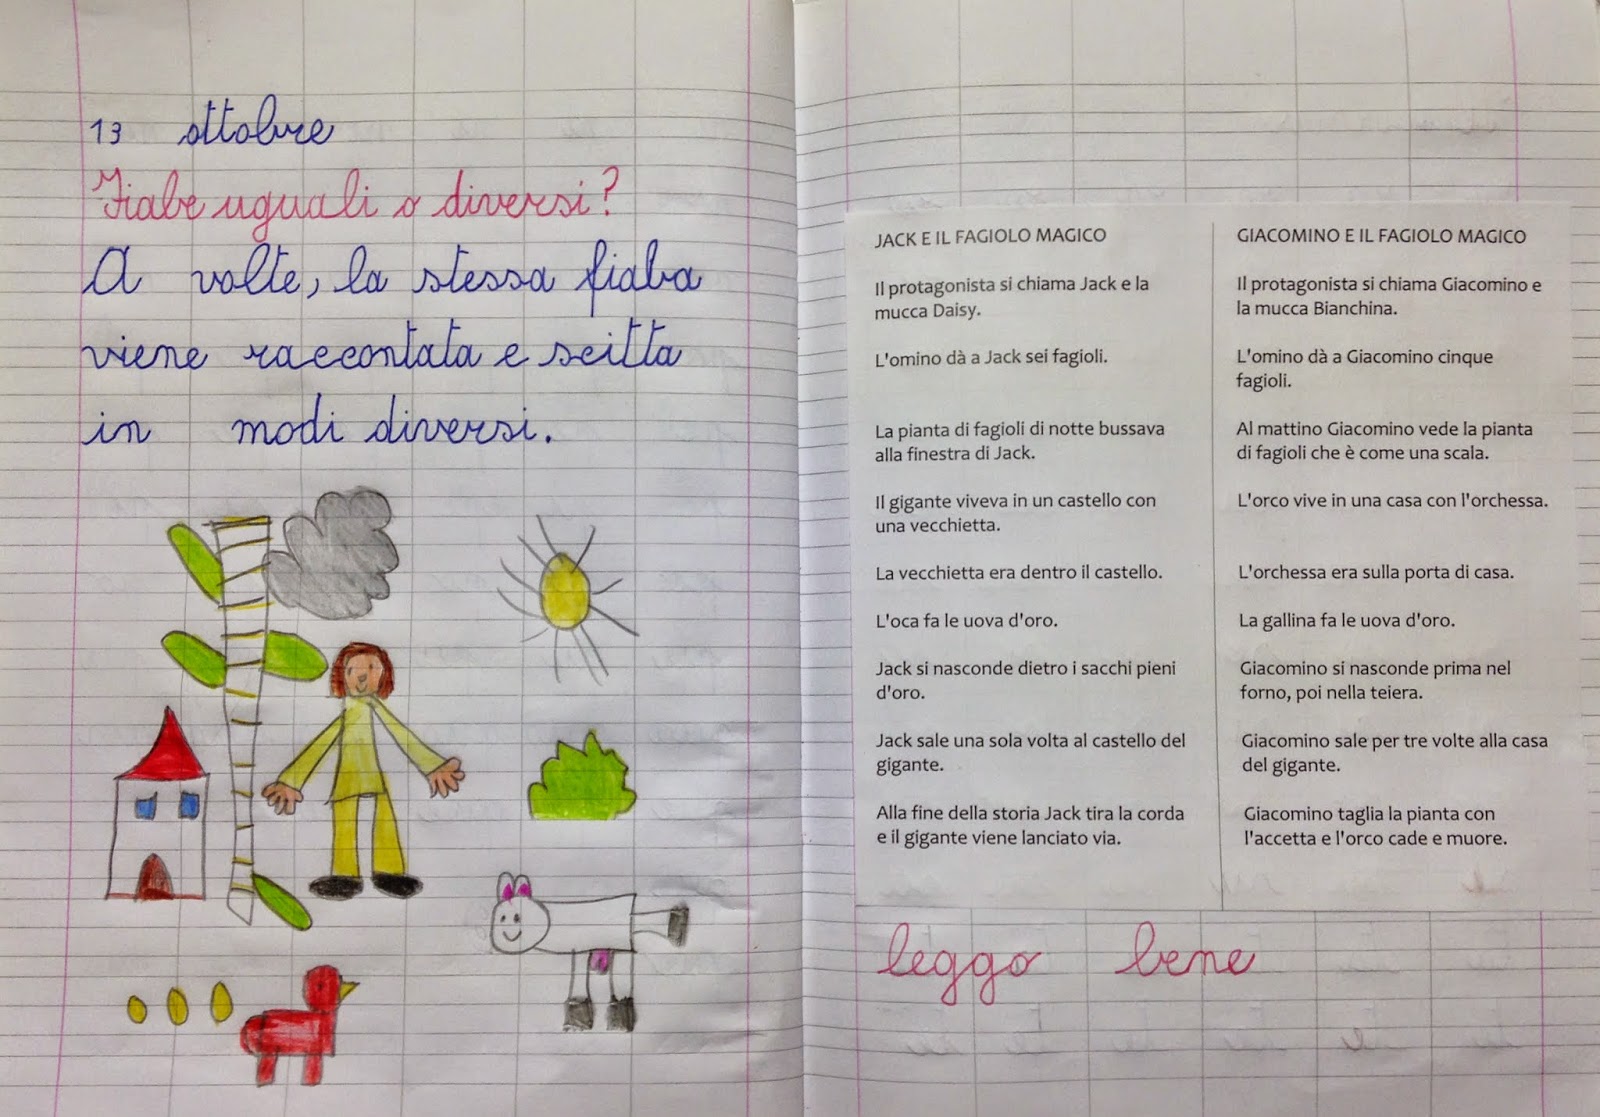 13 ottobre
Fiabe uguali o diversi?
A volte, la stessa fiaba
viene raccontata e scitta
in modi diversi.
JACK E IL FAGIOLO MAGICO
Il protagonista si chiama Jack e la
mucca Daisy.
L'omino dà a Jack sei fagioli.
La pianta di fagioli di notte bussava
alla finestra di Jack.
Il gigante viveva in un castello con
una vecchietta.
La vecchietta era dentro il castello.
L'oca fa le uova d'oro.
Jack si nasconde dietro i sacchi pieni
d'oro.
Jack sale una sola volta al castello del
gigante.
Alla fine della storia Jack tira la corda
e il gigante viene lanciato via.
GIACOMINO E IL FAGIOLO MAGICO
Il protagonista si chiama Giacomino e
la mucca Bianchina.
L'omino dà a Giacomino cinque
fagioli.
Al mattino Giacomino vede la pianta
di fagioli che è come una scala.
L'orco vive in una casa con l'orchessa.
L'orchessa era sulla porta di casa.
La gallina fa le uova d'oro.
Giacomino si nasconde prima nel
forno, poi nella teiera.
Giacomino sale per tre volte alla casa
del gigante.
Giacomino taglia la pianta con
l'accetta e l'orco cade e muore.
leggo bene